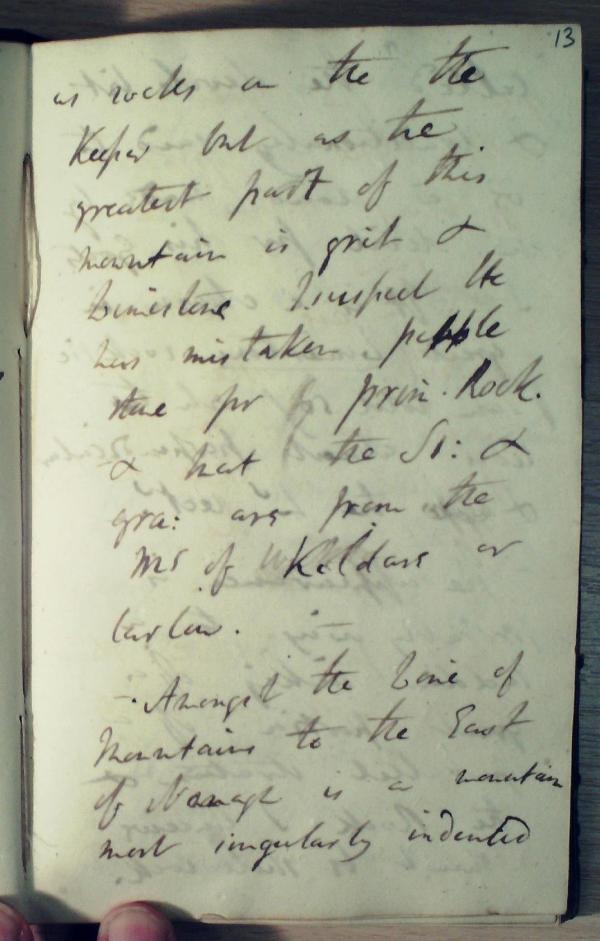 13
as rocks on the the
Keeper but as the
greatest part of this
mountain is grit &
Limestone I suspect He
has mistaken pebble
stone for prim. Rock.
& that the Si: &
gra: are from the
Mts of Kildare or
Carlow.
- Amongst the Line of
Mountains to the East
of Nenagh is a mountain
most singularly indented